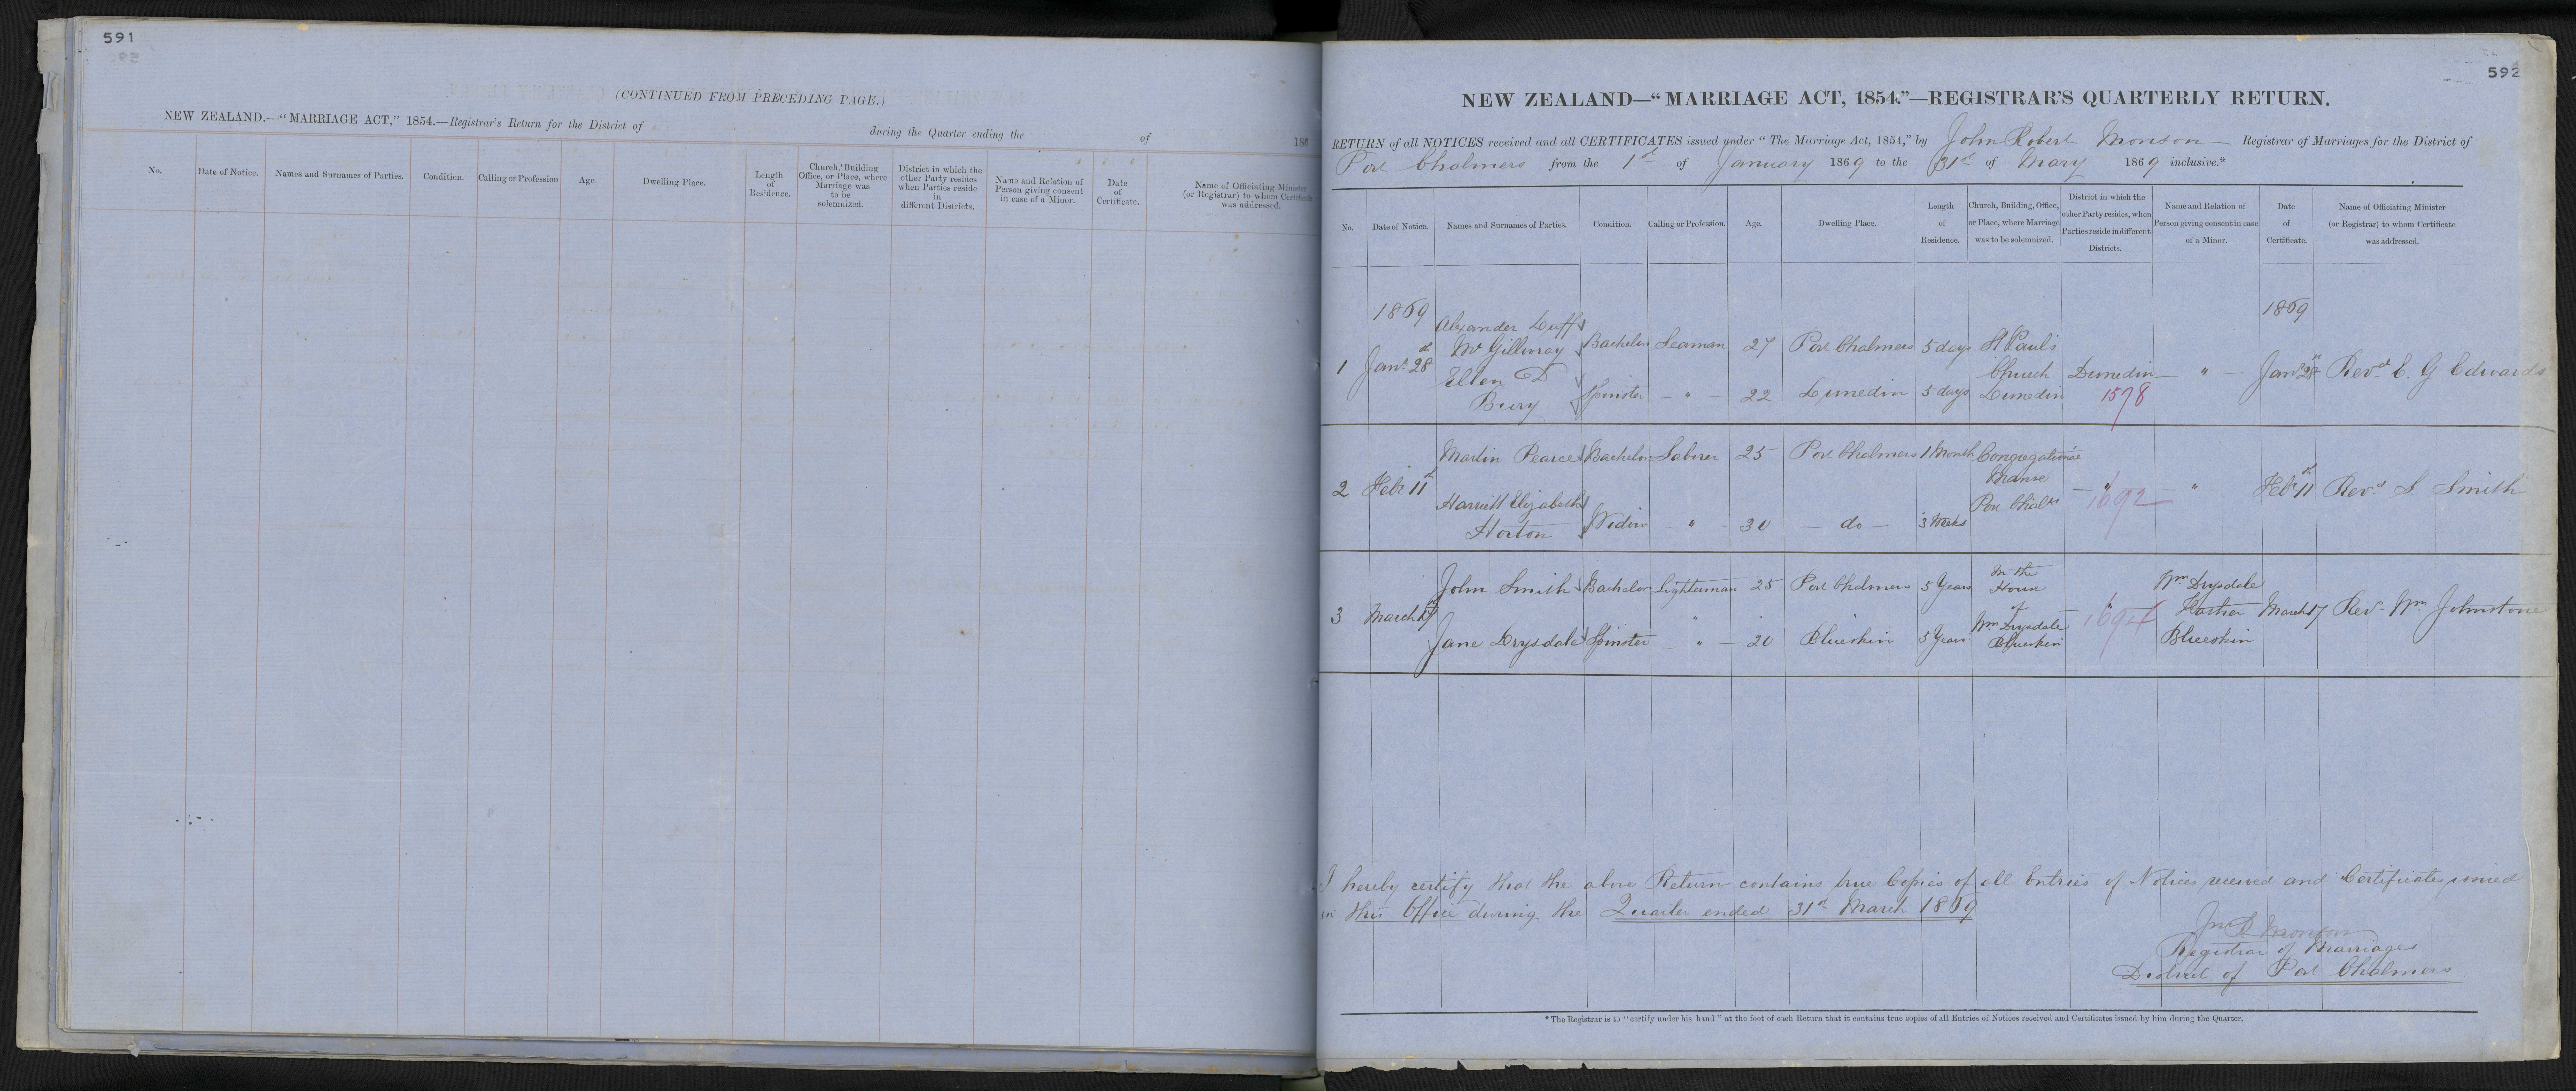 591
(CONTINUED FROM PRECEDING PAGE.)
NEW ZEALAND.—"MARRIAGE ACT," 1854.—Registrar's Return for the District of during the Quarter ending the of 186
No. Date of Notice. Names and Surnames of Parties. Condition. Calling or Profession Age. Dwelling Place. Length of Residence. Church, Building Office, or Place, where Marriage was to be solemnized. District in which the other Party resides when Parties reside in different Districts. Name and Relation of Person giving consent in case of a Minor. Date of Certificate. Name of Officiating Minister (or Registrar) to whom Certificate was addressed.
592
NEW ZEALAND—"MARRIAGE ACT, 1854."—REGISTRAR'S QUARTERLY RETURN.
RETURN of all NOTICES received and all CERTIFICATES issued under "The Marriage Act, 1854," by John Robert Monson Registrar of Marriages for the District of
Port Chalmers from the 1st of January 1869 to the 31st of Mary 1869 inclusive.*
No. Date of Notice. Names and Surnames of Parties. Condition. Calling or Profession. Age. Dwelling Place. Length of Residence. Church, Building, Office, or Place, where Marriage was to be solemnized. District in which the other Party resides, when Parties reside in different Districts. Name and Relation of Person giving consent in case of a Minor. Date of Certificate. Name of Officiating Minister (or Registrar) to whom Certificate was addressed.
1869 1869
Alexander Duff
McGillivray Bachelor Seaman 27 Port Chalmers 5 days St Paul's
1 Jany 28th Church Dunedin — " — Jany 28th Revd E. G Edwards
Ellen D
Bury Spinster — " 22 Dunedin 5 days Dunedin 1578
Martin Pearce Bachelor Laborer 25 Port Chalmers 1 Month Congregational
Manse
2 Feby 11th — " — " Feby 11th Revd S. Smith
1692
Harriett Elizabeth Port Chalrs
Horton Widow — " 30 — do — 3 Weeks
John Smith Bachelor Lighterman 25 Port Chalmers 5 Years In the House Wm Drysdale
3 March 17 of " Father March 17 Rev Wm Johnstone
1694
Jane Drysdale Spinster — " — 20 Blueskin 5 Years Wm Drysdale Blueskin Blueskin
I hereby certify that the above Return contains true Copies of all Entries of Notices received and Certificates issued
in this Office during the Quarter ended 31st March 1869
Jn R Monson
Registrar of Marriages
District of Port Chalmers
* The Registrar is to "certify under his hand" at the foot of each Return that it contains true copies of all Entries of Notices received and Certificates issued by him during the Quarter.